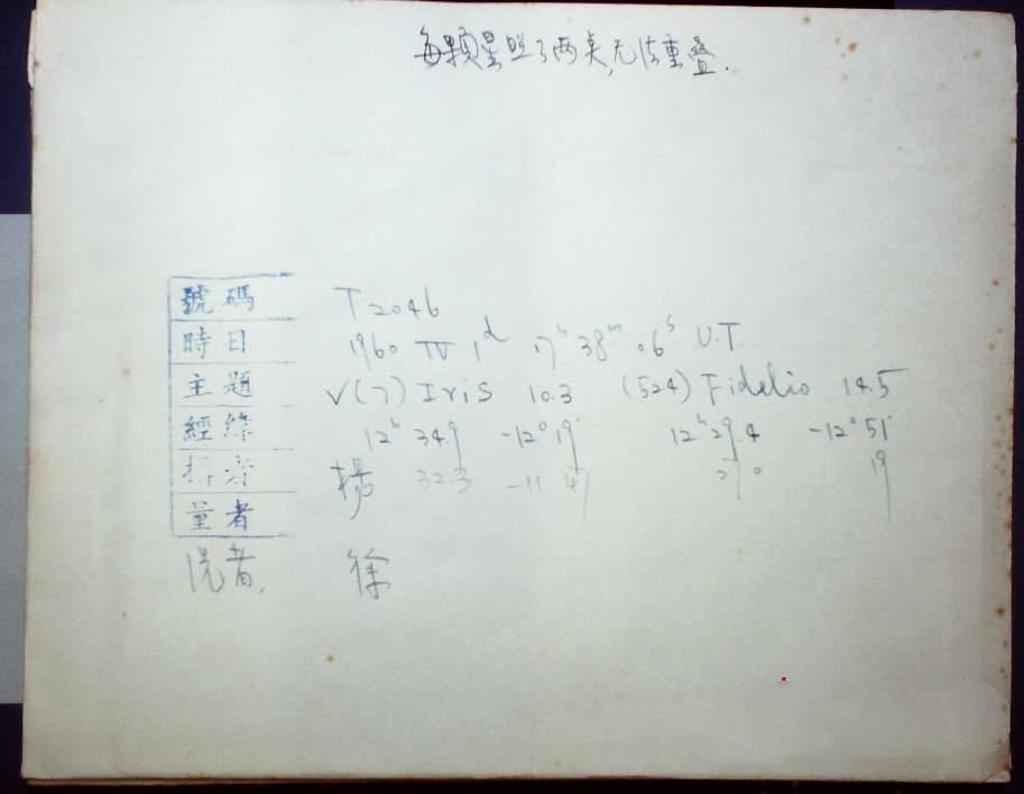 每颗星照了两点,无法重叠.
號碼 T2046
時日 1960 IV 1ᵈ 17ʰ 38ᵐ 06ˢ U.T
主題 √(7) Iris 10.3 (524) Fidelio 14.5
經緯 12ʰ 34.9 -12° 19' 12ʰ 29.4 -12° 51'
拍者 杨 32.3 -11 47 27.0 19
量者
洗者. 徐